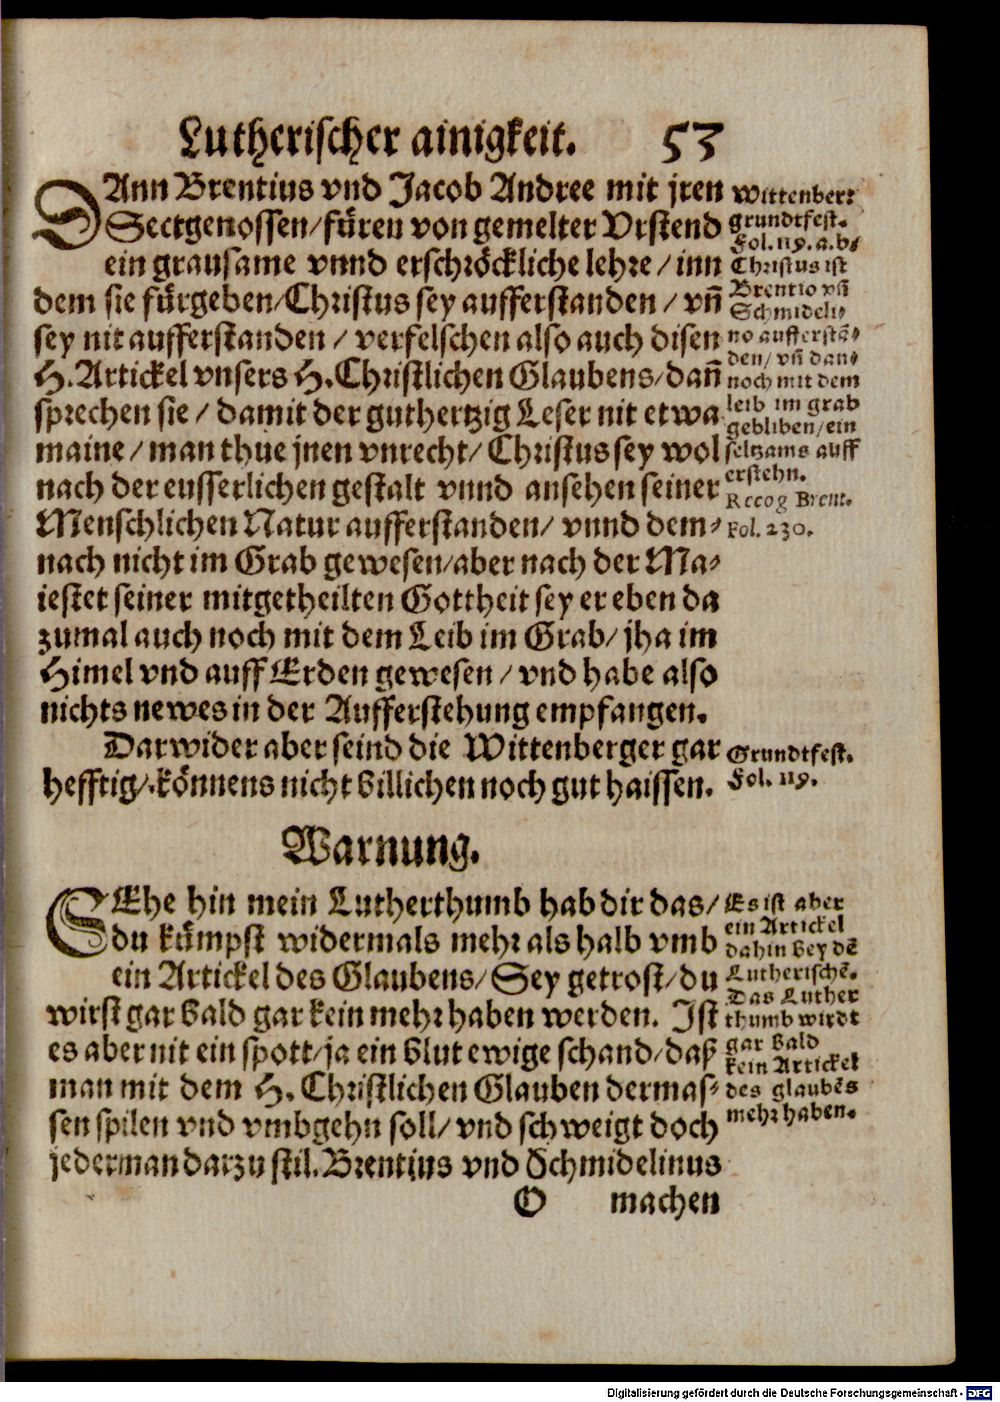 Lutherischer ainigkeit. 53
DAnn Brentius vnd Jacob Andree mit jren
Sectgenossen/füren von gemelter Vrstend
ein grausame vnnd erschröckliche lehre/inn
dem sie fürgeben/Christus sey aufferstanden/vñ
sey nit aufferstanden/verfelschen also auch disen
H. Artickel vnsers H. Christlichen Glaubens/dañ
sprechen sie/damit der guthertzig Leser nit etwa
maine/man thue jnen vnrecht/Christus sey wol
nach der eusserlichen gestalt vnnd ansehen seiner
Menschlichen Natur aufferstanden/vnnd dem-
nach nicht im Grab gewesen/aber nach der Ma-
iestet seiner mitgetheilten Gottheit sey er eben da
zumal auch noch mit dem Leib im Grab/jha im
Himel vnd auff Erden gewesen/vnd habe also
nichts newes in der Aufferstehung empfangen.
Darwider aber seind die Wittenberger gar
hefftig/können's nicht billichen noch gut haissen.
Wittenber:
grundtfest.
Fol. 119. a. b/
Christus ist
Brentio vñ
Schmideli-
no aufferstã-
den/vñ dan-
noch mit dem
leib im grab
gebliben/ein
seltzams auff
erstehn.
Recog Brent.
Fol. 230.
Grundtfest.
Fol. 119.
Warnung.
SEhe hin mein Lutherthumb hab dir das/
du kümpst widermals mehr als halb vmb
ein Artickel des Glaubens/Sey getrost/du
wirst gar bald gar kein mehr haben werden. Ist
es aber nit ein spott/ja ein blut ewige schand/daß
man mit dem H. Christlichen Glauben dermas-
sen spilen vnd vmbgehn soll/vnd schweigt doch
jederman darzu stil. Brentius vnd Schmidelinus
Es ist aber
ein Artickel
dahin bey dẽ
Lutherischẽ.
Das Luther
thumb wirdt
gar bald
kein Artickel
des glaubẽs
mehr haben.
O machen
Digitalisierung gefördert durch die Deutsche Forschungsgemeinschaft - DFG